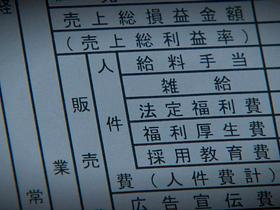 売上総損益金額
(売上総利益率)
経
常
業
販売
人件費
給料手当
雑給
法定福利費
福利厚生費
採用教育費
(人件費計)
広告宣伝費